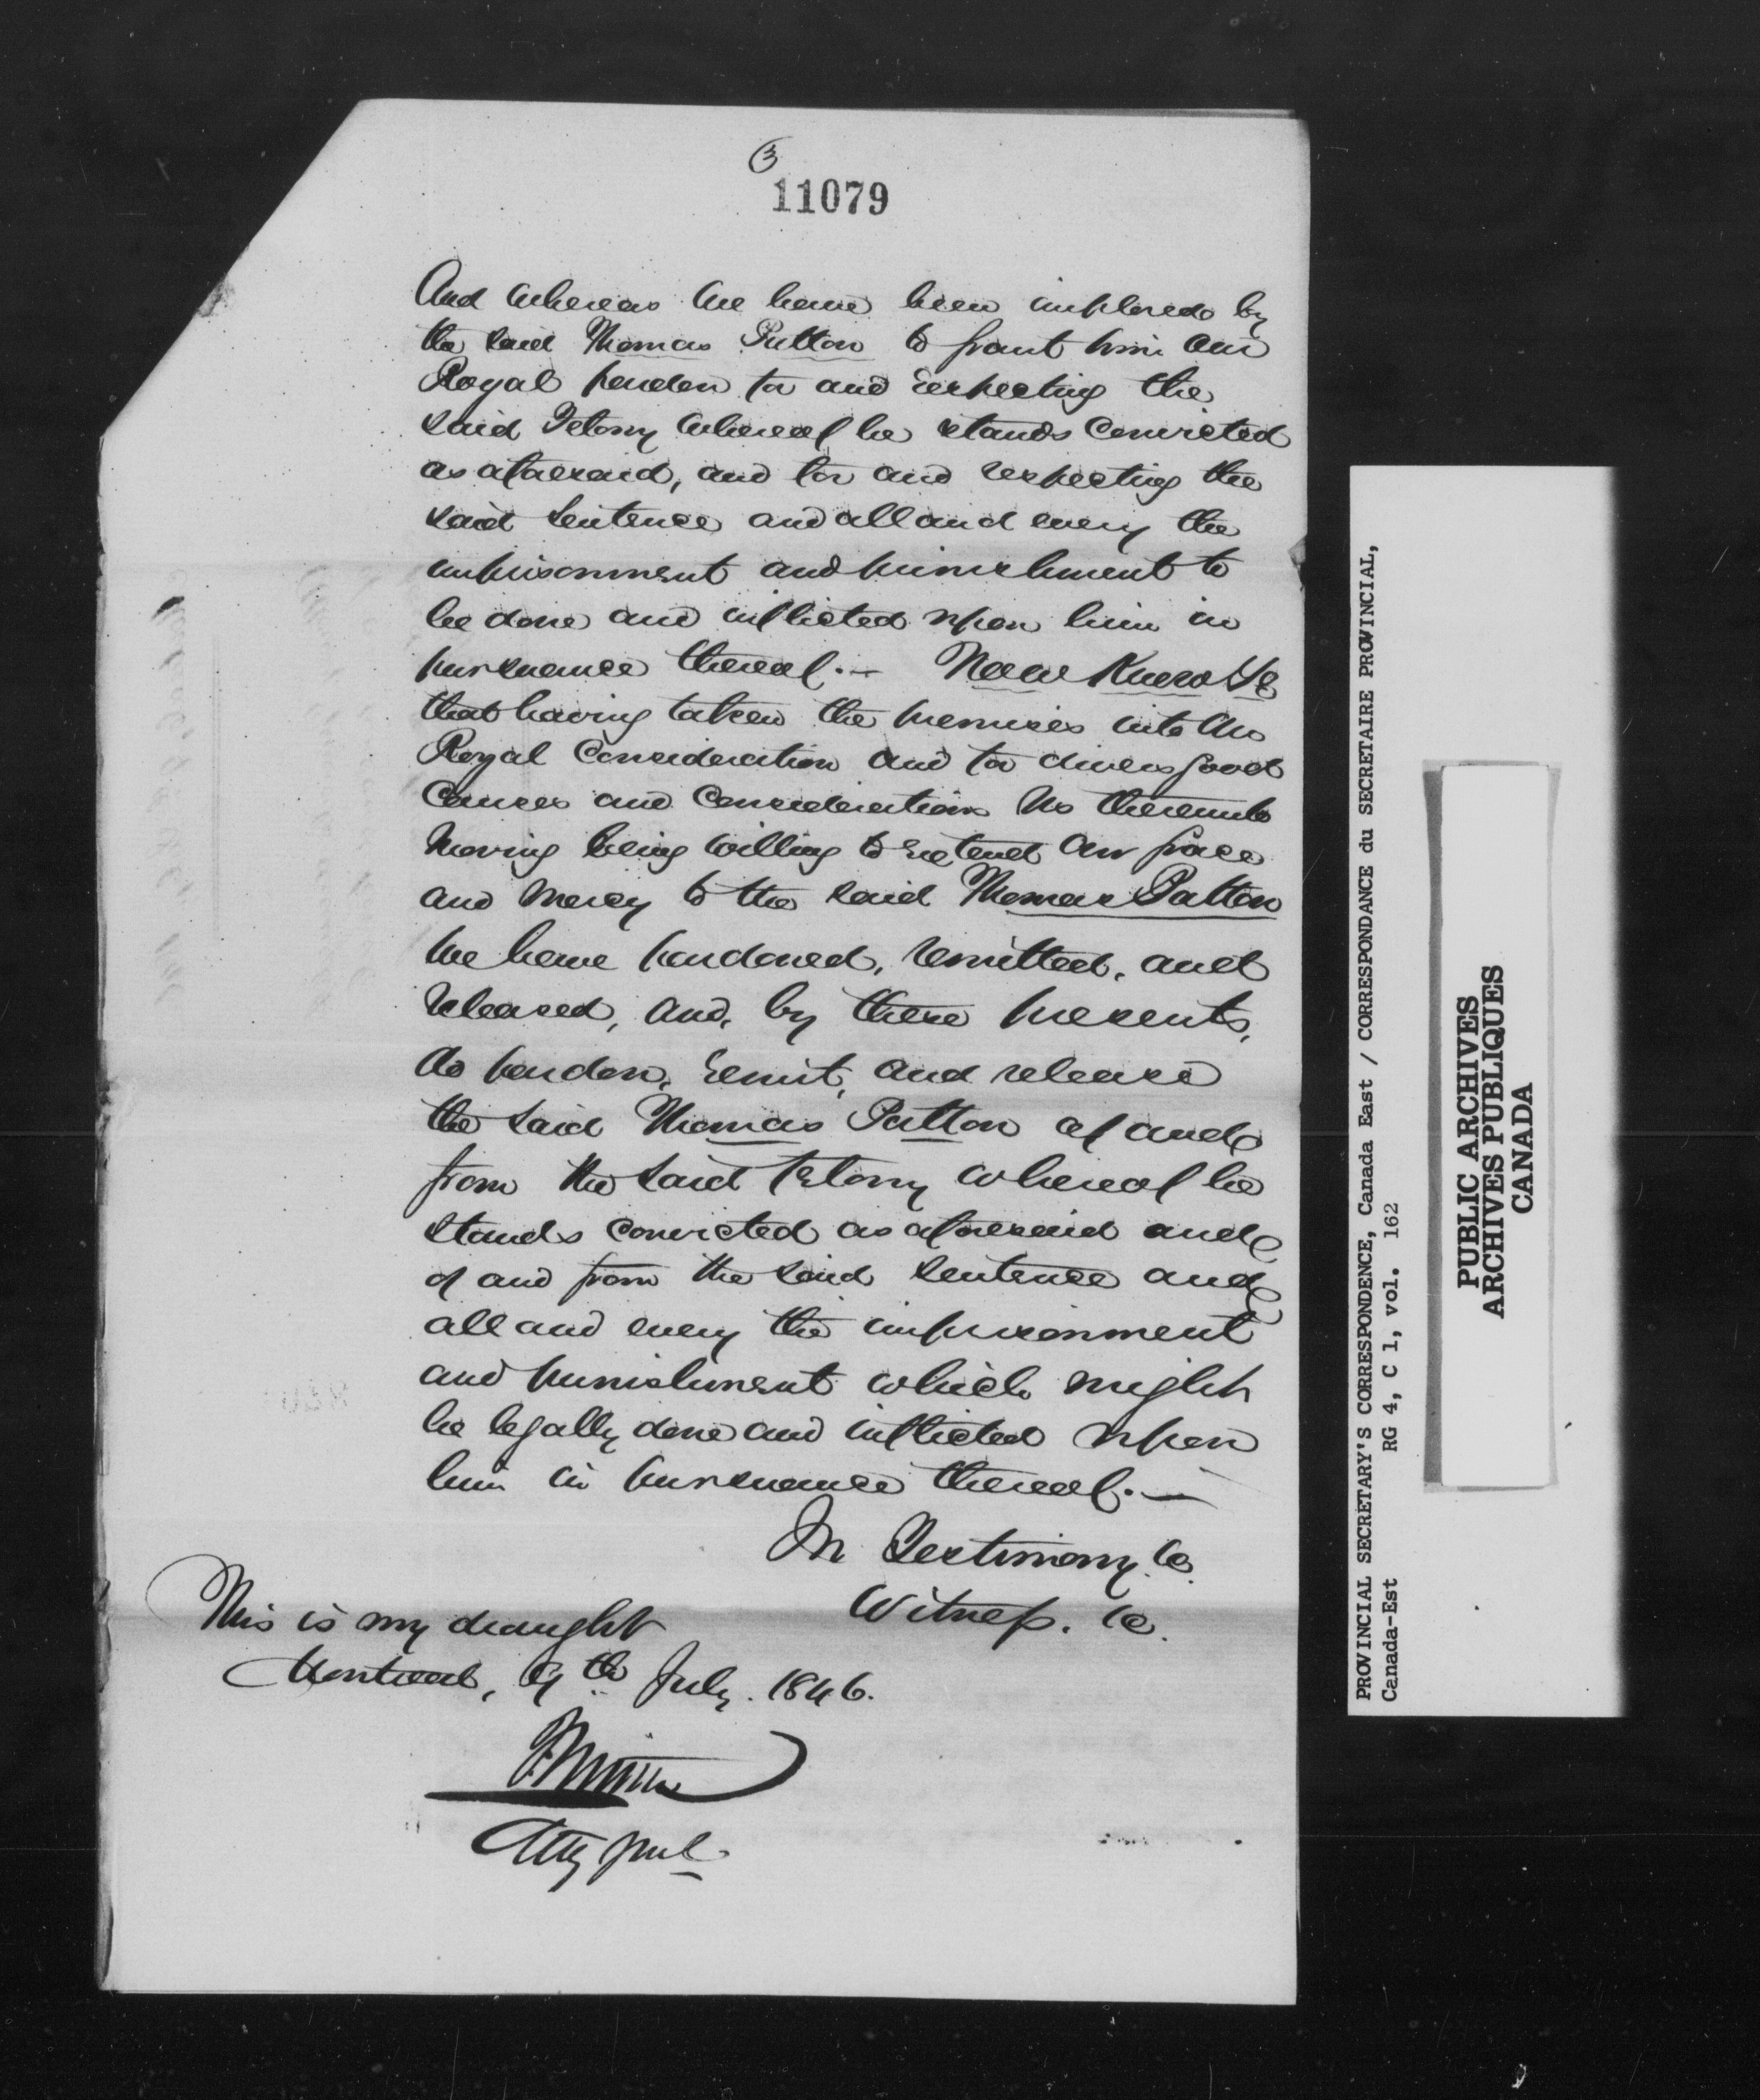 3
11079
And whereas We have been implored by
the said Thomas Patton to grant him Our
Royal pardon for and respecting the
said Felony whereof he stands Convicted
as aforesaid, and for and respecting the
said Sentence and all and every the
imprisonment and punishment to
be done and inflicted upon him in
pursuance thereof.— Now Know Ye
that having taken the premises into Our
Royal Consideration and for divers good
Causes and Considerations Us thereunto
moving being willing to extend Our grace
and Mercy to the said Thomas Patton
We have pardoned, remitted, and
released, and, by these presents,
do pardon, remit, and release
the said Thomas Patton of and
from the said Felony whereof he
stands convicted as aforesaid and
of and from the said Sentence and
all and every the imprisonment
and punishment which might
be legally done and inflicted upon
him in pursuance thereof.—
In Testimony &c.
Witness. &c.
This is my draught
Montreal, 9th July. 1846.
Atty Genl
PROVINCIAL SECRETARY'S CORRESPONDENCE, Canada East / CORRESPONDANCE du SECRETAIRE PROVINCIAL,
Canada-Est RG 4, C 1, vol. 162
PUBLIC ARCHIVES
ARCHIVES PUBLIQUES
CANADA